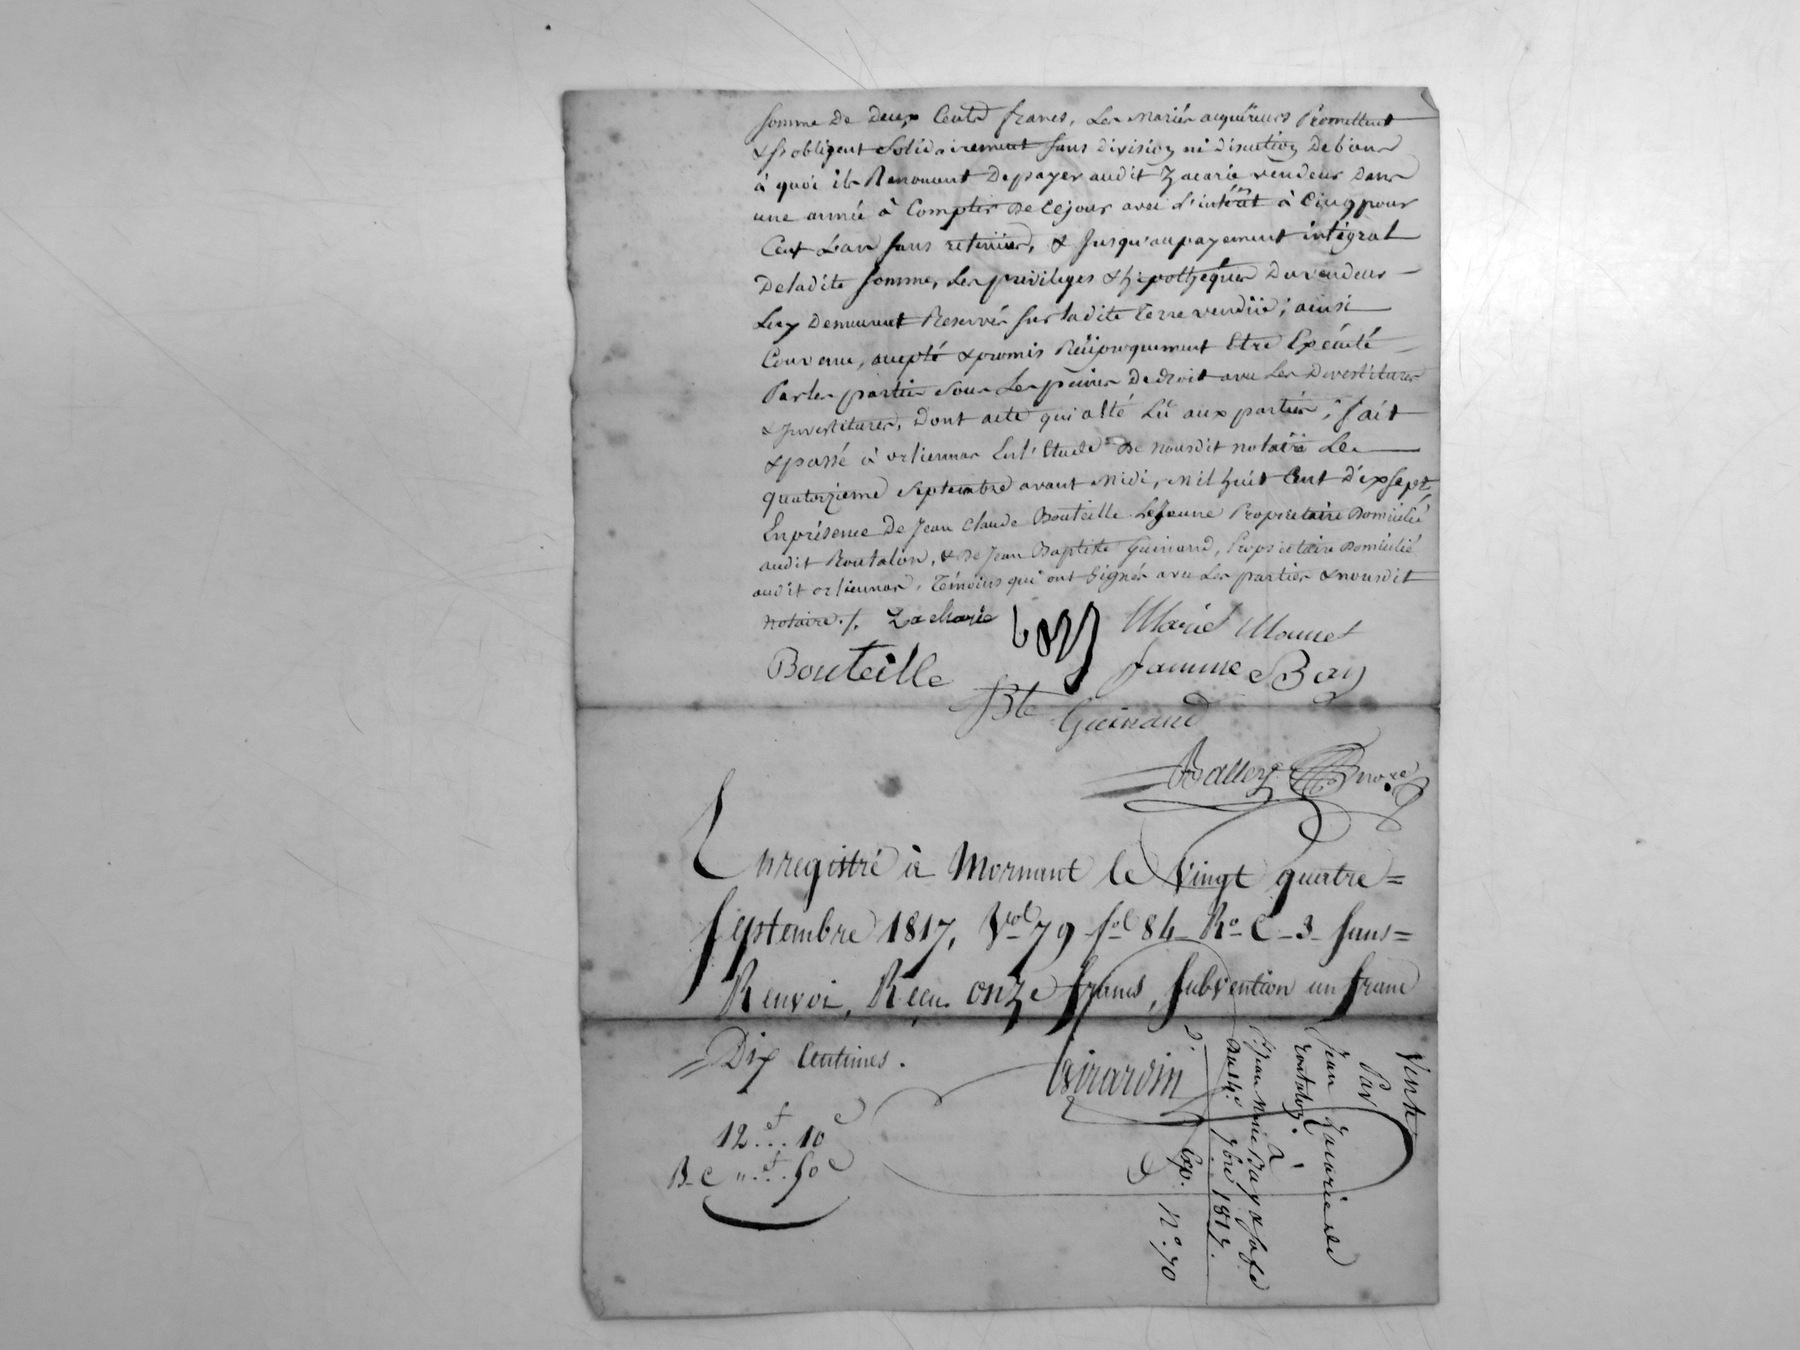 somme De Deux Cents francs, Les Mariés acquéreurs Promettent
& s'obligent Solidairement sans division ni discution De biens
à quoi ils Renoncent De payer audit Zacarie vendeur Dans
une année à Compter De Ce jour avec L'intérêt à Cinq pour
Cent L'an sans retenüe, & Jusqu'au payement intégral
De ladite somme, Les privileges & hipothèques Du vendeur
Luy Demeurent Reservés sur ladite Terre vendüe; ainsi
Convenu, accepté & promis Réciproquement Etre Exécuté
Par les parties Sous Les peines De droit avec Les Devestitures
& Investitures, Dont acte qui a été Lû aux parties; fait
& passé à orlienas En l'Etude De nousdit notaire Le
quatorzieme Septembre avant Midi, Mil huit Cent dixsept
En présence De Jean Claude Bouteille LeJeune Propriétaire Domicilié
audit Rontalon, & De Jean Baptiste Guinand, Propriétaire Domicilié
audit orlienas, Témoins qui ont Signés avec Les parties & nousdit
notaire ./. Zacharie Bay Marie Monnet
Bouteille famme Bay
JBte Guinand
Balley
Enregistré à Mornant le Vingt quatre =
Septembre 1817, Vol 79 fol 84 Ro C 3 sans =
Renvoi, Reçu onze francs, subvention un franc
= Dix Centimes.
Girardin
12 f... 10 c
B. C ".. f 50 c
Vente
Par
Jean Zacarie de
rontalon
à
Sr Jean Marie Bay & sa fe
Du 14e. 7bre 1817.
Exp. N°. 70